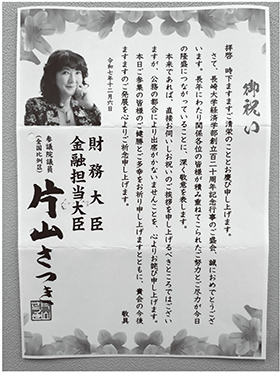 御祝い
拝啓 時下ますますご清栄のこととお慶び申し上げます。
さて、長崎大学経済学部創立百二十周年記念行事のご盛会、誠におめでとうござ
います。長年にわたり関係各位の皆様が積み重ねてこられたご努力とご尽力が今日
の隆盛につながっていることに、深く敬意を表します。
本来であれば、直接お伺いしお祝いのご挨拶を申し上げるべきところではござい
ますが、公務の都合により出席がかないませんことを、心よりお詫び申し上げます。
本日ご参集の皆様のご健勝とご多幸をお祈り申し上げますとともに、貴会の今後
ますますのご発展を心よりご祈念申し上げます。
敬具
令和七年十二月六日
財務大臣
金融担当大臣
参議院議員
(全国比例区)
片山さつき